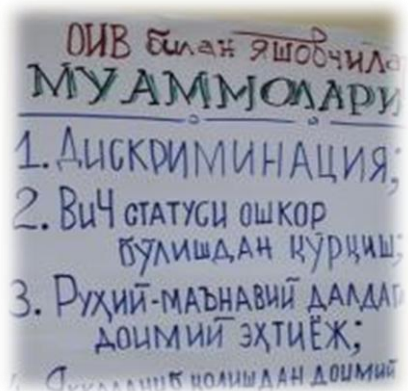 ОИВ билан яшовчила
МУАММОЛАРИ
1. ДИСКРИМИНАЦИЯ;
2. ВИЧ СТАТУСИ ОШКОР
БЎЛИШДАН ҚЎРҚИШ;
3. РУҲИЙ-МАЪНАВИЙ ДАЛДАГ
ДОИМИЙ ЭҲТИЁЖ;
ҚОЛИШДАН ДОИМИЙ